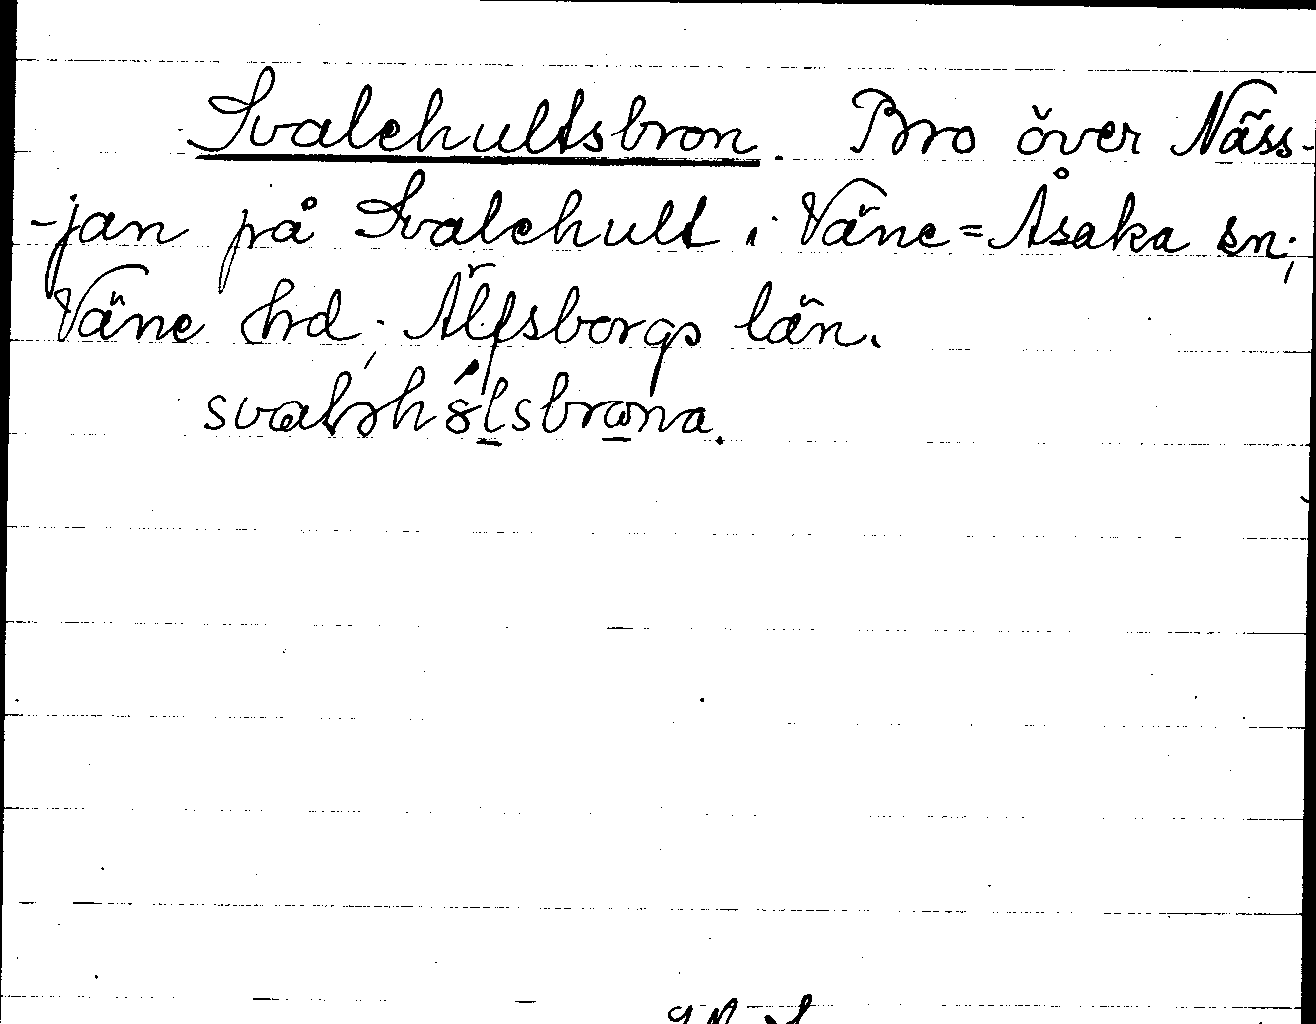 Svalehultsbron. Bro över Näss-
-jan på Svalehult i Väne=Åsaka sn;
Väne hrd; Älfsborgs län.